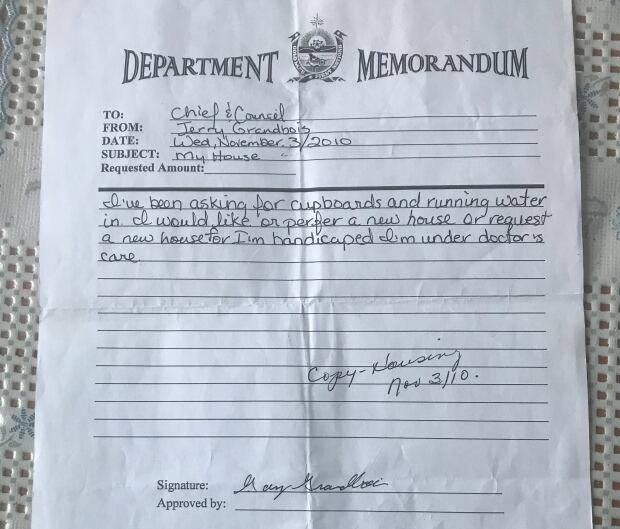 DEPARTMENT MEMORANDUM
TO: Chief & Council
FROM: Jerry Grandbois
DATE: Wed, November 3/2010
SUBJECT: My House
Requested Amount:
I've been asking for cupboards and running water
in I would like or perfer a new house or request
a new house for I'm handicaped I'm under doctor's
care
Copy - Housing
Nov 3/10.
Signature: Grandbois
Approved by: